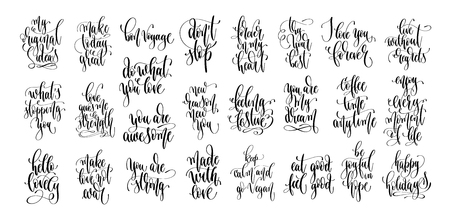 my
original
ideas
make
today
great
bon voyage
don't
stop
forever
in my
heart
try
your
best
I love you
forever
live
without
regrets
do what
you love
what's
stopping
you
love
gives me
strength
you are
awesome
new
season,
new
you are
my
dream
coffee
time
anytime
enjoy
every
moment
of life
hello
lovely
make
love not
war
you are
strong
made
with
love
keep
calm and
go vegan
eat good
feel good
be
joyful
in
hope
happy
holidays